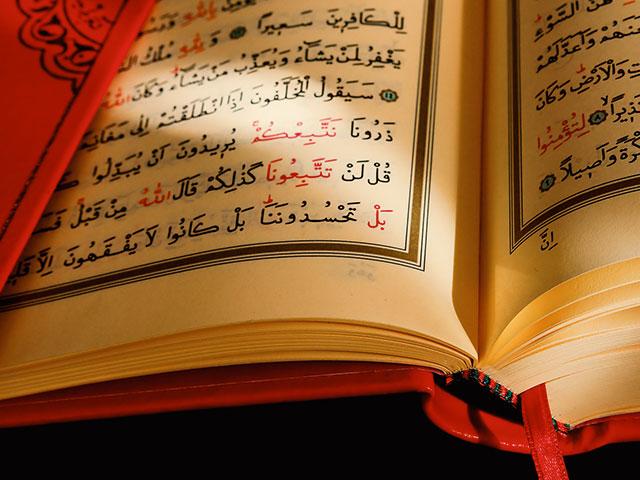 السَّوْءِ
وَاَعَدَّ لَهُمْ
وَالْاَرْضِ وَكَانَ
لِتُؤْمِنُوا
وَاَصِيلاً
اِنَّ
بِاللّٰهِ
لِلْكَافِرِينَ سَعِيراً وَلِلّٰهِ مُلْكُ
يَغْفِرُ لِمَنْ يَشَٓاءُ وَيُعَذِّبُ مَنْ يَشَٓاءُ وَكَانَ اللّٰهُ
سَيَقُولُ الْمُخَلَّفُونَ اِذَا انْطَلَقْتُمْ اِلٰى
ذَرُونَا نَتَّبِعْكُمْ يُرِيدُونَ اَنْ يُبَدِّلُوا
قُلْ لَنْ تَتَّبِعُونَا كَذٰلِكُمْ قَالَ اللّٰهُ مِنْ قَبْلُ
بَلْ تَحْسُدُونَنَا بَلْ كَانُوا لَا يَفْقَهُونَ اِلَّا